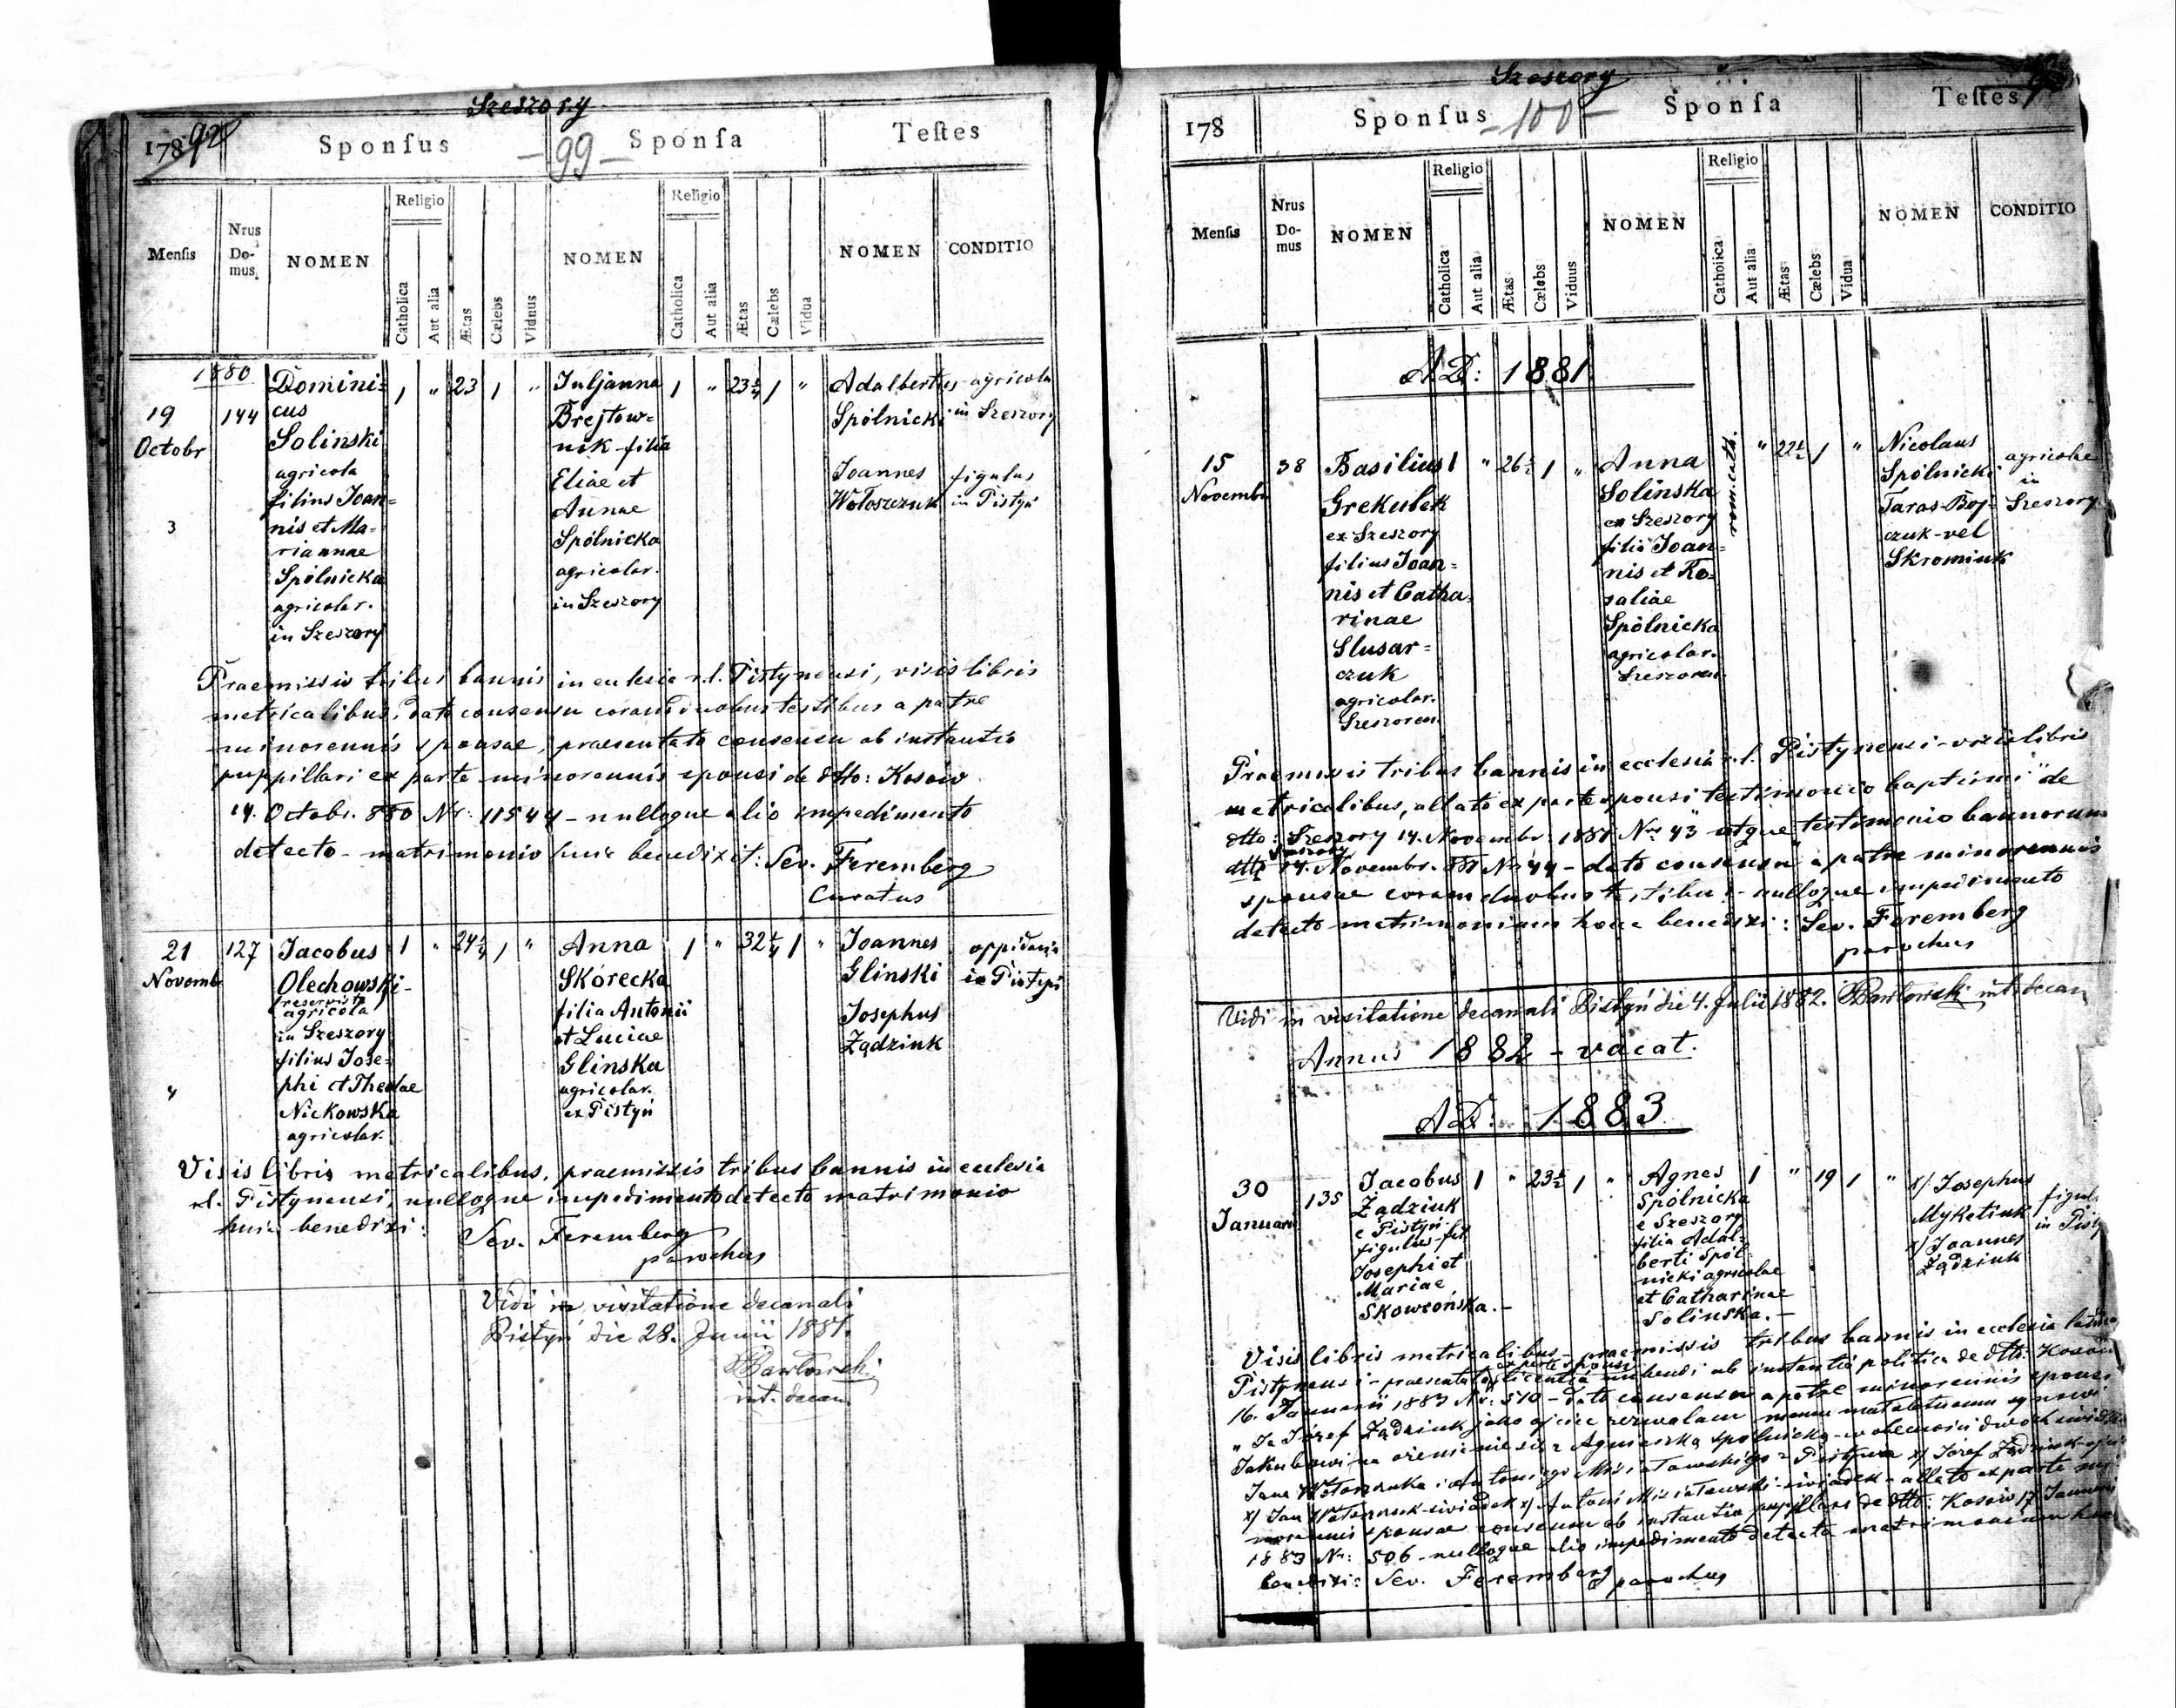 Szeszory
178 92
Sponsus
- 99 -
Sponsa
Testes
Mensis
Nrus Domus
NOMEN
Religio
Catholica
Aut alia
Ætas
Cælebs
Viduus
NOMEN
Religio
Catholica
Aut alia
Ætas
Cælebs
Vidua
NOMEN
CONDITIO
1880
19
Octobr
3
144
Domini=
cus
Solinski
agricola
filius Joan=
nis et Ma=
riannae
Spólnicka
agricolar.
in Szeszory
1 " 23 1 "
Juljanna
Brejtow=
nik filia
Eliae et
Annae
Spólnicka
agricolar.
in Szeszory
1 " 23 1 "
Adalbertus agricola
Spólnicki in Szeszory
Joannes figulus
Wołoszczuk in Pistyń
Praemissis tribus bannis in ecclesia r.l. Pistynensi, visis libris
metricalibus, dato consensu coram duobus testibus a patre
minorennis sponsae, praesentato consensu ab instantia
puppillari ex parte minorennis sponsi de dtto: Kosów
14. Octobr. 880 Nr: 11544 - nulloque alio impedimento
detecto - matrimonio huic benedixit: Sev. Feremberg
Curatus
21
Novembr
"
127
Jacobus
Olechowski -
reservista
agricola
in Szeszory
filius Jose=
phi et Theclae
Nickowska
agricolar.
1 " 24 1 "
Anna
Skórecka
filia Antonii
et Luciae
Glinska
agricolar.
ex Pistyń
1 " 32 1 "
Joannes
Glinski
Josephus
Żądziuk
oppidanis
in Pistyń
Visis libris metricalibus, praemissis tribus bannis in ecclesia
r.l. Pistynensi, nulloque impedimento detecto matrimonio
huic benedixi:
Sev. Feremberg
parochus
Vidi in visitatione decanali
Pistyń die 28. Junii 1881.
Pawłowski
int. decan
Szeszory
178
Sponsus
- 100 -
Sponsa
Testes
Mensis
Nrus Domus
NOMEN
Religio
Catholica
Aut alia
Ætas
Cælebs
Viduus
NOMEN
Religio
Catholica
Aut alia
Ætas
Cælebs
Vidua
NOMEN
CONDITIO
AD: 1881
15
Novembr
38
Basilius
Grekulak
ex Szeszory
filius Joan=
nis et Catha=
rinae
Slusar=
czuk
agricolar.
Szeszoren.
1 " 26 1 "
Anna
Solinska
ex Szeszory
filia Joan=
nis et Ro=
saliae
Spólnicka
agricolar.
Szeszoren
rom. cath.
" 22 1 "
Nicolaus
Spólnicki
Taras Boj-
czuk - vel
Skromiuk
agricolae
in
Szeszory
Praemissis tribus bannis in ecclesia r.l. Pistynensi - visis libris
metricalibus, allato ex parte sponsi testimonio baptismi de
dtto: Szeszory 14. Novembr. 1881 Nr. 43 atque testimonio bannorum
dtto Szeszory 14. Novembr. 881 Nr 44 - dato consensu a patre minorennis
sponsae coram duobus testibus - nulloque impedimento
detecto matrimonium hoce benedixi: Sev. Feremberg
parochus
Vidi in visitatione decanali Pistyń die 4. Julii 1882. Pawłowski int. decan
Annus 1882 - vacat.
AD: 1883
30
Januar
135
Jacobus
Żądziuk
e Pistyń
figulus fil
Josephi et
Mariae
Skowrońska. -
1 " 23 1 "
Agnes
Spólnicka
e Szeszory
filia Adal=
berti Spól=
nicki agricolae
et Catharinae
Solinska. -
1 " 19 1 "
x/ Josephus
Myketiuk
x/ Joannes
Żądziuk
figul.
in Pisty
Visis libris metricalibus - praemissis tribus bannis in ecclesia latina
Pistynensi - praesentato ex parte sponsi licentia nubendi ab instantia politica de dtto. Kosów
16. Januarii 1883 Nr: 510 - dato consensu a patre minorennis sponsi
" Ja Józef Żądziuk jako ojciec zezwalam memu małoletniemu synowi
Jakubowi na ożenienie się z Agnieszką Spólnicką - w obecności dwóch świad
Jana Wołoszczuka i Antoniego Misiatowskiego z Pistynia x/ Józef Żądziuk - ojciec
x/ Jan Wołoszczuk - świadek x/ Antoni Misiatowski - świadek - allato ex parte mi=
norennis sponsae consensu ab instantia pupillari de dtto: Kosów 17 Januarii
1883 Nr: 506 - nulloque alio impedimento detecto matrimonium hoc
benedixi: Sev. Feremberg parochus